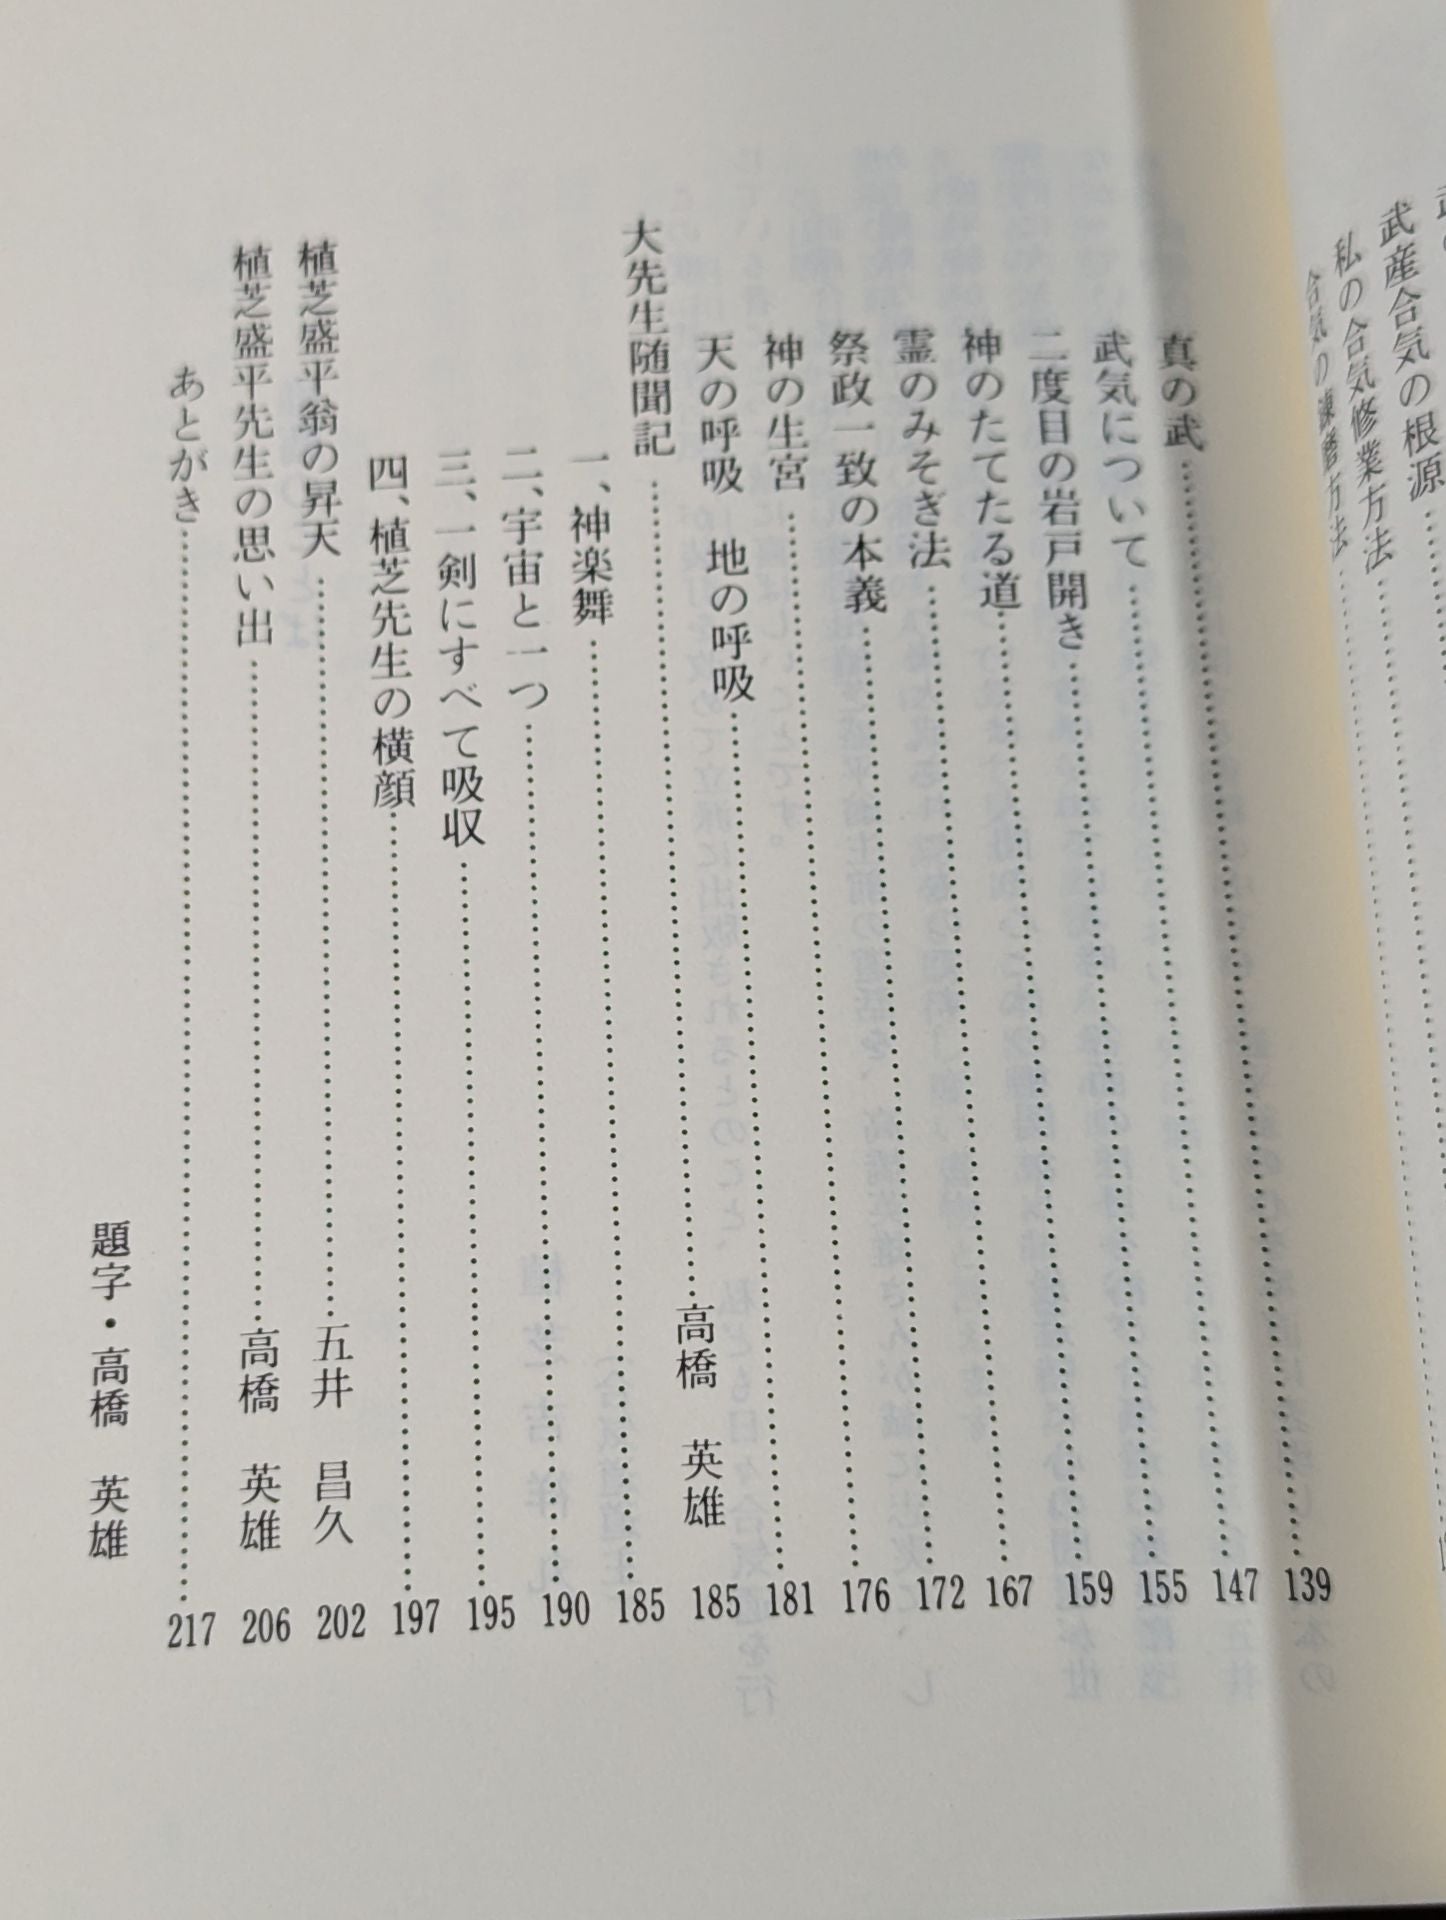 武産合気の根源
私の合気修業方法
合気の練磨方法
真の武 139
武気について 147
二度目の岩戸開き 155
神のたてたる道 159
霊のみそぎ法 167
祭政一致の本義 172
神の生宮 176
天の呼吸　地の呼吸 181
大先生随聞記 高橋　英雄 185
一、神楽舞 185
二、宇宙と一つ 190
三、一剣にすべて吸収 195
四、植芝先生の横顔 197
植芝盛平翁の昇天 五井　昌久 202
植芝盛平先生の思い出 高橋　英雄 206
あとがき 217
題字・高橋　英雄